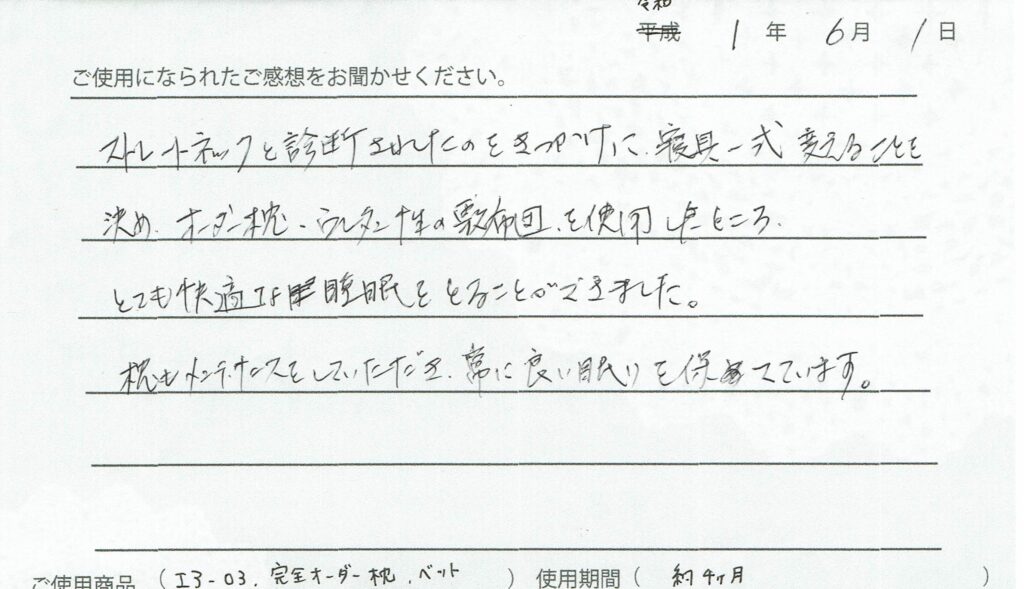 令和
平成 1年 6月 1日
ご使用になられたご感想をお聞かせください。
ストレートネックと診断されたのをきっかけに、寝具一式 変えることを
決め、オーダー枕、ウレタン性の敷布団、を使用したところ、
とても快適な睡眠をとることができました。
枕もメンテナンスをしていただき、常に良い眠りを保てています。
ご使用商品 ( I3-03、完全オーダー枕、ベット ) 使用期間 ( 約4ヶ月 )